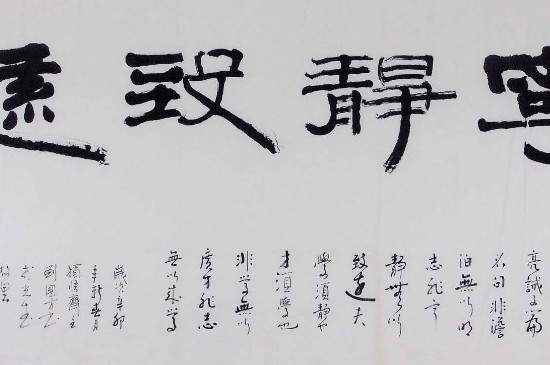 寧靜致遠
亮誡子篇
名句非澹
泊無以明
志非寧
靜無以
致遠夫
學須靜也
才須學也
非學無以
廣才非志
無以成學
歲次辛卯